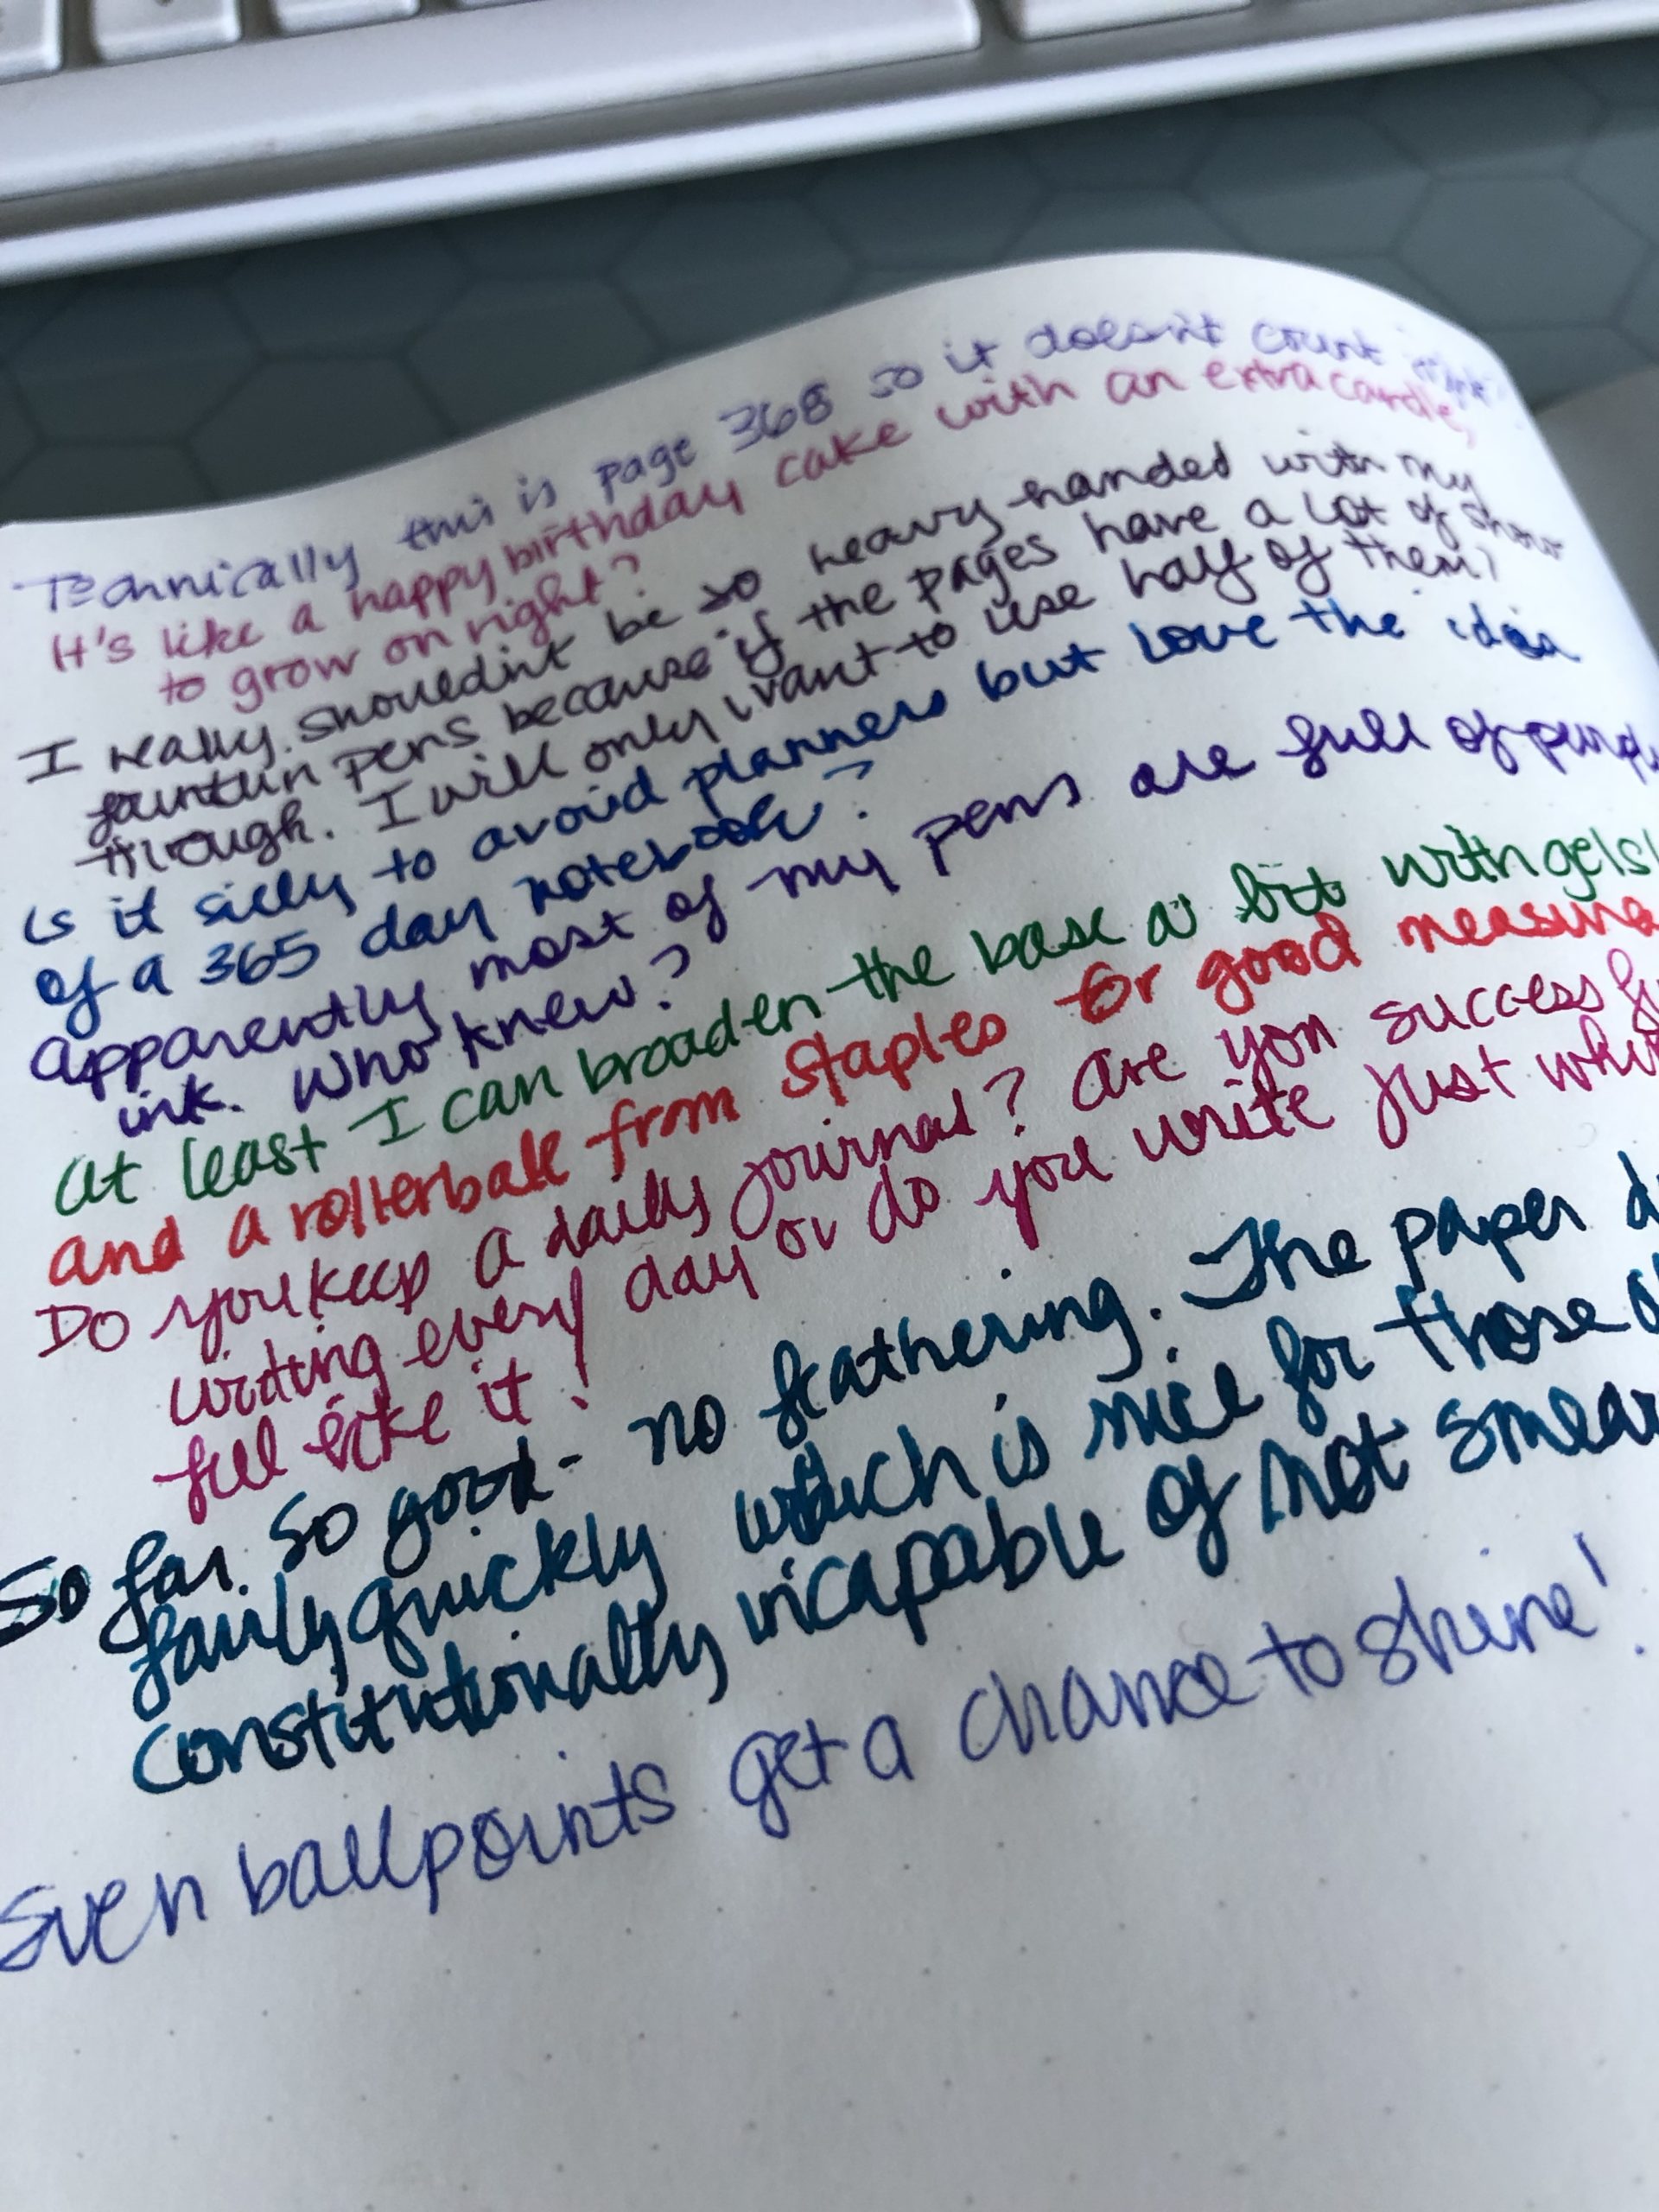 Technically this is page 368 so it doesn't count right?
It's like a happy birthday cake with an extra candle,
to grow on right?
I really shouldn't be so heavy handed with my
fountain pens because if the pages have a lot of show
through. I will only want to use half of them?
Is it silly to avoid planners but love the idea
of a 365 day notebook?
Apparently most of my pens are full of purpl
ink. Who knew?
At least I can broaden the base a bit with gels!
and a rollerball from Staples for good measure
Do you keep a daily journal? Are you successfu
writing every day or do you write just wh
feel like it!
So far so good - no feathering. The paper d
fairly quickly which is nice for those
constitutionally incapable of not smear
Even ballpoints get a chance to shine!